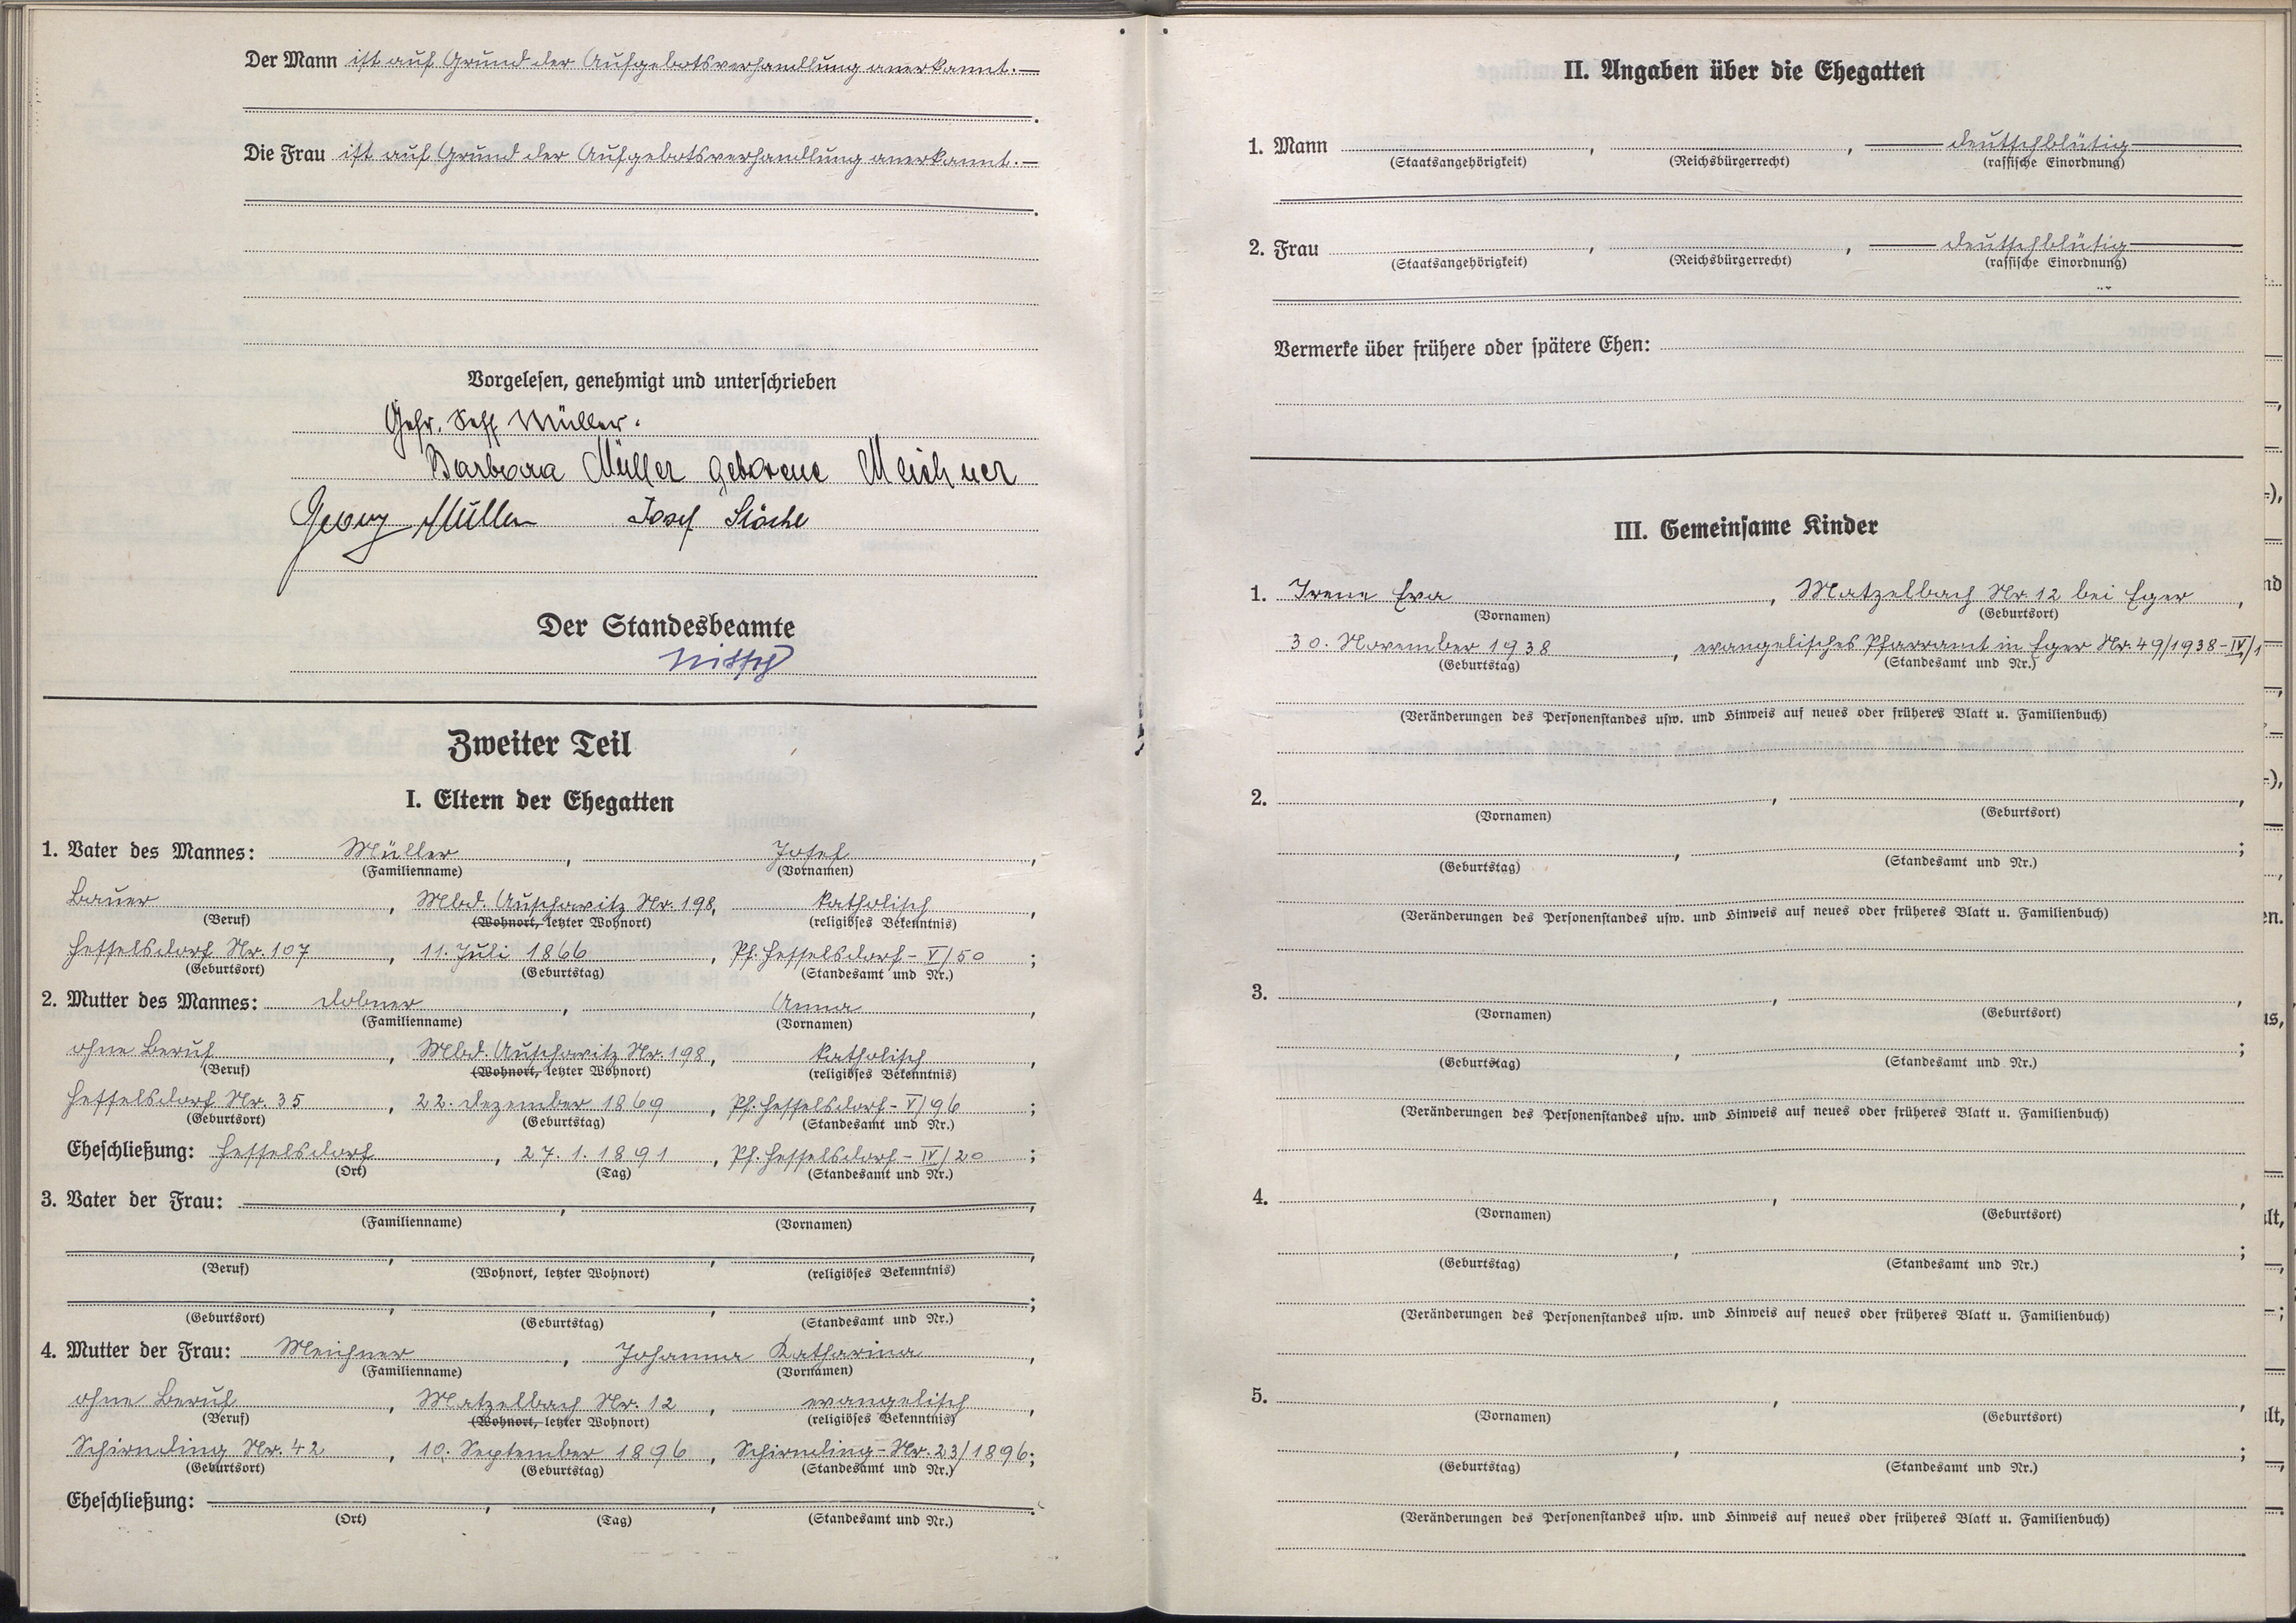 Der Mann ist auf Grund der Aufgebotsverhandlung anerkannt.—
Die Frau ist auf Grund der Aufgebotsverhandlung anerkannt.—
Vorgelesen, genehmigt und unterschrieben
Gefr. Seff Müller.
Barbara Müller geborene Meichner
Georg Müller Josef
Der Standesbeamte
Zweiter Teil
I. Eltern der Ehegatten
1. Vater des Mannes: Müller, Josef,
(Familienname) (Vornamen)
Bauer, Mbd. Auschowitz Nr. 198, katholisch,
(Beruf) (Wohnort, letzter Wohnort) (religiöses Bekenntnis)
Hesselsdorf Nr. 107, 11. Juli 1866, Pf. Hesselsdorf - V/50;
(Geburtsort) (Geburtstag) (Standesamt und Nr.)
2. Mutter des Mannes: Dobner, Anna,
(Familienname) (Vornamen)
ohne Beruf, Mbd. Auschowitz Nr. 198, katholisch,
(Beruf) (Wohnort, letzter Wohnort) (religiöses Bekenntnis)
Hesselsdorf Nr. 35, 22. Dezember 1869, Pf. Hesselsdorf - V/96;
(Geburtsort) (Geburtstag) (Standesamt und Nr.)
Eheschließung: Hesselsdorf, 27. 1. 1891, Pf. Hesselsdorf - IV/20;
(Ort) (Tag) (Standesamt und Nr.)
3. Vater der Frau: , ,
(Familienname) (Vornamen)
, , ,
(Beruf) (Wohnort, letzter Wohnort) (religiöses Bekenntnis)
, , ;
(Geburtsort) (Geburtstag) (Standesamt und Nr.)
4. Mutter der Frau: Meichner, Johanna Katharina,
(Familienname) (Vornamen)
ohne Beruf, Matzelbach Nr. 12, evangelisch,
(Beruf) (Wohnort, letzter Wohnort) (religiöses Bekenntnis)
Schirnding Nr. 42, 10. September 1896, Schirnding - Nr. 23/1896;
(Geburtsort) (Geburtstag) (Standesamt und Nr.)
Eheschließung: , , .
(Ort) (Tag) (Standesamt und Nr.)
II. Angaben über die Ehegatten
1. Mann , , deutschblütig
(Staatsangehörigkeit) (Reichsbürgerrecht) (rassische Einordnung)
2. Frau , , deutschblütig
(Staatsangehörigkeit) (Reichsbürgerrecht) (rassische Einordnung)
Vermerke über frühere oder spätere Ehen:
III. Gemeinsame Kinder
1. Irene Eva, Matzelbach Nr. 12 bei Eger,
(Vornamen) (Geburtsort)
30. November 1938, evangelisches Pfarramt in Eger Nr. 49/1938 - IV/1
(Geburtstag) (Standesamt und Nr.)
(Veränderungen des Personenstandes usw. und Hinweis auf neues oder früheres Blatt u. Familienbuch)
2. , ,
(Vornamen) (Geburtsort)
, ;
(Geburtstag) (Standesamt und Nr.)
(Veränderungen des Personenstandes usw. und Hinweis auf neues oder früheres Blatt u. Familienbuch)
3. , ,
(Vornamen) (Geburtsort)
, ;
(Geburtstag) (Standesamt und Nr.)
(Veränderungen des Personenstandes usw. und Hinweis auf neues oder früheres Blatt u. Familienbuch)
4. , ,
(Vornamen) (Geburtsort)
, ;
(Geburtstag) (Standesamt und Nr.)
(Veränderungen des Personenstandes usw. und Hinweis auf neues oder früheres Blatt u. Familienbuch)
5. , ,
(Vornamen) (Geburtsort)
, ;
(Geburtstag) (Standesamt und Nr.)
(Veränderungen des Personenstandes usw. und Hinweis auf neues oder früheres Blatt u. Familienbuch)